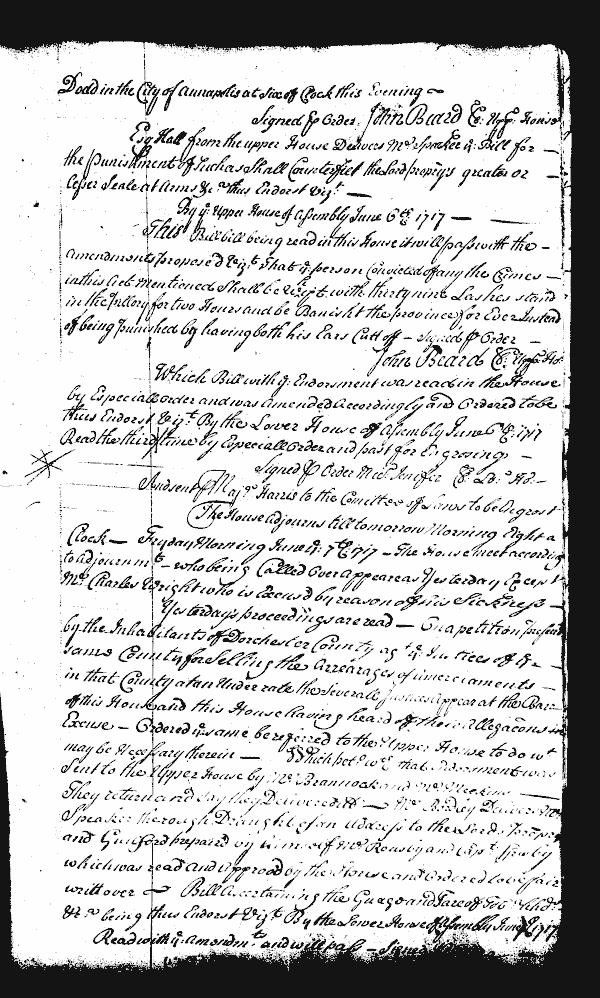 Dodd in the City of Annapolis at Six of Clock this Evening ~
Signed p Order. John Beard Cl: Upp: House
Esq Hall from the upper House Delivers Mr Speaker ye Bill for —
the punishment of Such as Shall Counterfeit the Lord proprys greater or —
Lesser Seale at Arms &c thus Endorst Vizt —
By ye Upper House of Assembly June 6th 1717 —
This Bill bill being read in this House it will pass with the —
amendments propose'd Vizt That ye person Convicted of any the Crimes —
in this Act mentioned Shall be Whipt with thirty nine Lashes stand
in the pillory for two Hours and be Banisht the province for Ever Instead
of being punished by having both his Ears Cutt off — signed p Order —
John Beard Cl: Upp: Ho:
Which Bill with ye Endorsment was read in the House
by Especiall order and was Amended Accordingly and Ordered to be
thus Endorst Vizt By the Lower House of Assembly June 6th 1717
Read the third time by Especiall Order and past for Engrosing —
Signed p Order Mich: Jenifer Cl: Lo: Ho:
And sent p Majr Harris to the Comittee of Laws to be Engrost
The House adjourns till tomorrow Morning Eight a
Clock — Fryday Morning June ye 7th 1717 — The House meet according
to adjournmt — who being Called Over appeared as Yesterday Except
Mr Charles Wright who is Excus'd by reason of his Sickness —
Yesterday's proceedings are read — On a petition prefer'd
by the Inhabitants of Dorchester County agt ye Justices of ye —
same County for Selling the Arrearages of —
in that County at an Under rate the Severall Justices appear at the Barr
of this House and this House having heard of their Allegacons in
Excuse — Ordered ye same be referred to the Upper House to do wt
may be Necessary therein — Which pet wth that Endorsment was
Sent to the Upper House by Mr Brannock and Mr
They return and say they Delivered it — Delivers Mr
Speaker the rough Draught of an Address to the Lords
and Guilford prepared by himself Mr Rousby and Capt
which was read and Approv'd by the House and Ordered to be fair
writt over — Bill Ascertaining the Guage and Tare of Tobo Hhds
&c being thus Endorst Vizt By the Lower House of Assembly June 1717
Read with ye amendmts and will pass — Signed